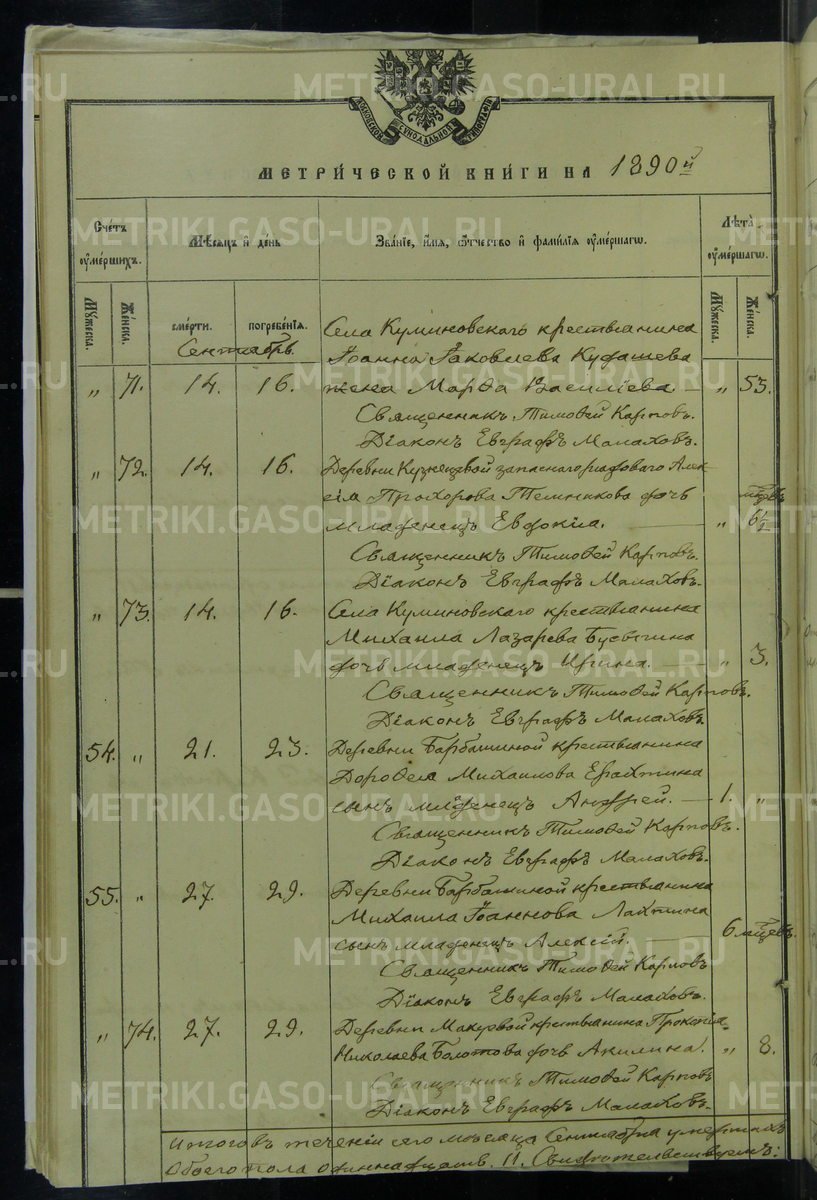 МОСКОВСКОЙ СѴНОДАЛЬНОЙ ТИПОГРАФІИ
МЕТРИ́ЧЕСКОЙ КНИ́ГИ НА 1890й
Сче́тъ оу҆ме́ршихъ.
Мѣ́сяцъ и҆ де́нь
Зва́нїе, и҆́мѧ, ѻ҆́тчество и҆ фами́лїѧ оу҆ме́ршагѡ.
Лѣ́та оу҆ме́ршагѡ.
Му́жеска.
Же́нска.
сме́рти.
погребе́нїѧ.
Му́жеска.
Же́нска.
Сентябрь.
Села Куминовскаго крестьянина
Іоанна Іаковлева Кудашева
„ 71. 14. 16. жена Марѳа Василіева. — „ 55.
Священникъ Тимоѳей Карповъ.
Діаконъ Евграфъ Малаховъ.
„ 72. 14. 16. Деревни Кузнецовой запаснаго рядоваго Алек-
сія Прохорова Темникова дочь мцевъ
младенецъ Евдокіа. — „ 6½
Священникъ Тимоѳей Карповъ.
Діаконъ Евграфъ Малаховъ.
„ 73. 14. 16. Села Куминовскаго крестьянина
Михаила Лазарева Бусыгина
дочь младенецъ Ирина. — „ 3.
Священникъ Тимоѳей Карповъ.
Діаконъ Евграфъ Малаховъ.
54. „ 21. 23. Деревни Барбашиной крестьянина
Дороѳеа Михаилова Ерахтина
сынъ младенецъ Андрей. — 1. „
Священникъ Тимоѳей Карповъ.
Діаконъ Евграфъ Малаховъ.
55. „ 27. 29. Деревни Барбашиной крестьянина
Михаила Іоаннова Лахтина
сынъ младенецъ Алексій. — 6 мцевъ.
Священникъ Тимоѳей Карповъ
Діаконъ Евграфъ Малаховъ.
„ 74. 27. 29. Деревни Макуевой крестьянина Прокопія
Николаева Болотова дочь Акилина. „ 8.
Священникъ Тимоѳей Карповъ
Діаконъ Евграфъ Малаховъ.
Итого въ теченіи сего мѣсяца Сентября умершихъ
обоего пола одиннадцать. 11. Свидѣтельствуемъ:
METRIKI.GASO-URAL.RU